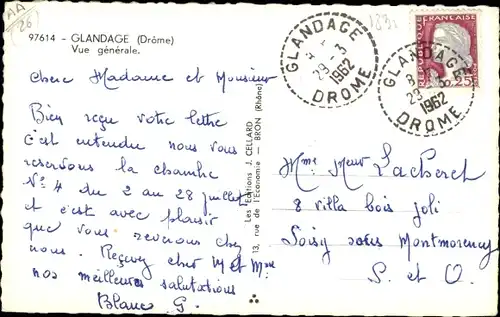 97614 - GLANDAGE (Drôme)
Vue générale.
Chers Madame et Monsieur
Bien reçu votre lettre
c'est entendu nous vous
reservons la chambre
N° 4 du 2 au 28 juillet
et c'est avec plaisir
que vous revenons chez
nous. Reçevez cher M et Mme
nos meilleures salutations
Blanc G.
Les Editions J. CELLARD
13, rue de l'Economie - BRON (Rhône)
GLANDAGE
29 - 3
1962
DROME
REPUBLIQUE FRANÇAISE
0,25
GLANDAGE
29
1962
DROME
Mme Meur Lacheret
8 villa bois joli
Soisy sous Montmorency
S. et O.
AA
26